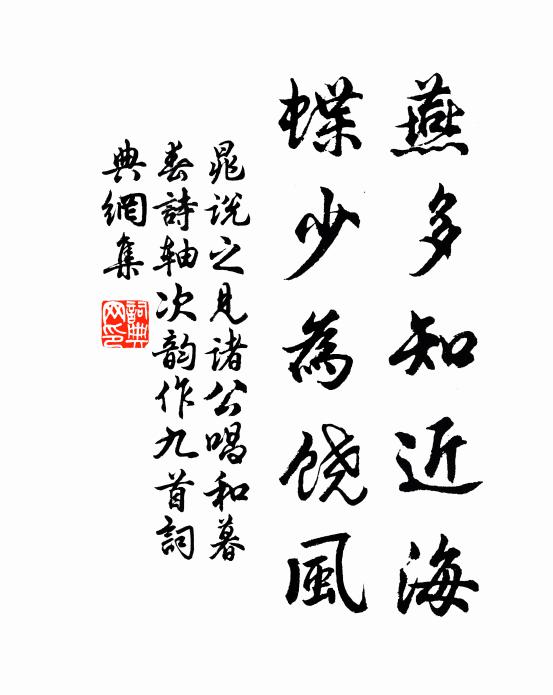 燕多知近海
蝶少為饶風
晁说之見诸公唱和暮
春詩轴次韵作九首詞
典網集
詞典網印